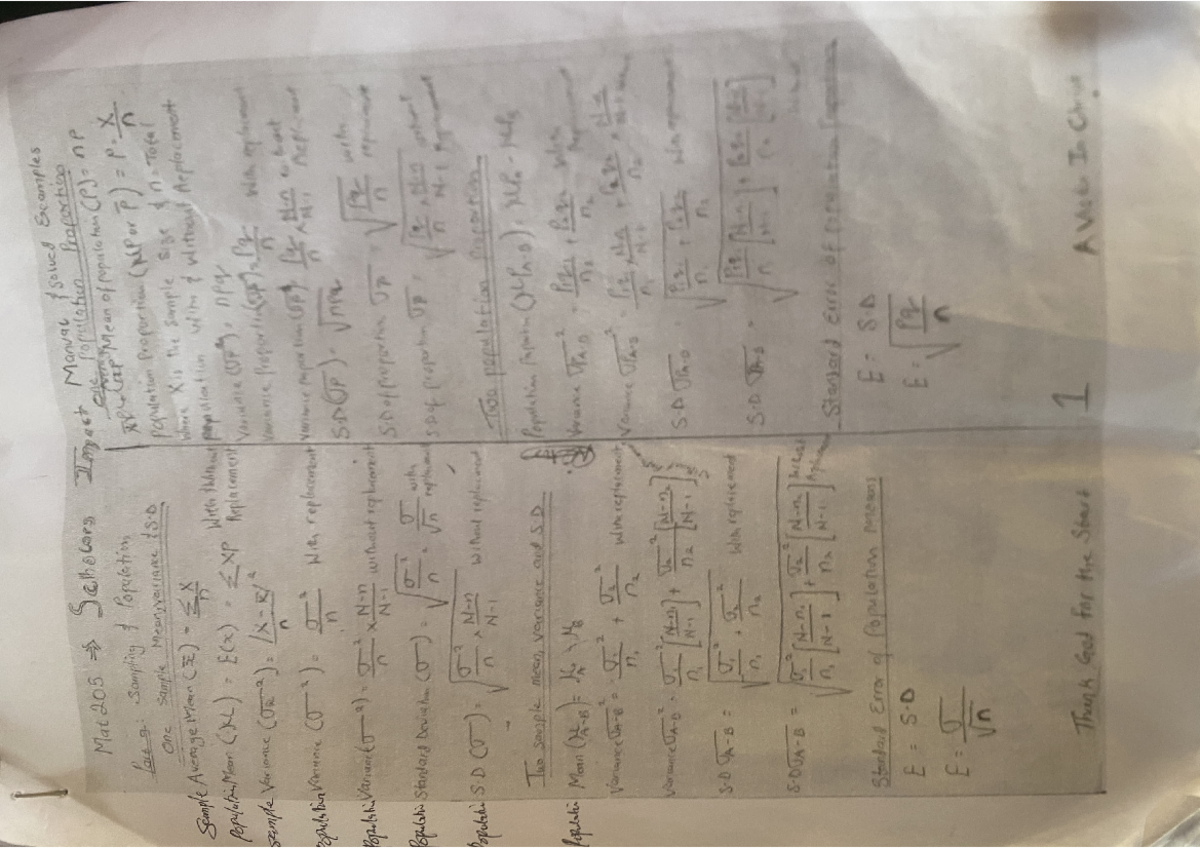 Mat 205 ⇒ Scholars Impact Manual & Solved Examples
Sampling & Population
One Sample Mean, variance & S.D
Sample Average/Mean (x̄) = ΣX/n
Population Mean (μ) = E(x) = ΣXP With & Without Replacement
Sample Variance = (X - x̄)²/n
Population Variance (σ²) = σ²/n With replacement
Population Variance (σ²) = σ²/n × N-n/N-1 without replacement
Population Standard Deviation (σ) = √(σ²/n) = σ/√n with replacement
Population S.D (σ) = √(σ²/n × N-n/N-1) without replacement
Two sample mean, variance and S.D
Population Mean (μA-B) = μA - μB
Variance σA-B² = σ₁²/n₁ + σ₂²/n₂ With replacement
Variance σA-B² = σ₁²/n₁ [N-n₁/N-1] + σ₂²/n₂ [N-n₂/N-1]
S.D σA-B = √(σ₁²/n₁ + σ₂²/n₂) With replacement
S.D σA-B = √(σ₁²/n₁ [N-n₁/N-1] + σ₂²/n₂ [N-n₂/N-1]) without Replacement
Standard Error of Population means
E = S.D
E = σ/√n
Thank God For the Start
One population Proportion
Mean of population (P) = nP
Population Proportion (μP or P̄) = P = X/n
Where X is the Sample Size & n = Total
population With & Without Replacement
Variance (σP²) = npq
Variance Proportion (σP²) = Pq/n With replacement
Variance Proportion (σP²) = Pq/n × N-n/N-1 without Replacement
S.D (σP) = √npq
S.D of proportion σP = √(Pq/n) with replacement
S.D of proportion σP = √(Pq/n × N-n/N-1) without Replacement
Two population Proportion
Population Proportion (μPA-B) = μPA - μPB
Variance σPA-B² = P₁q₁/n₁ + P₂q₂/n₂ With Replacement
Variance σPA-B² = P₁q₁/n₁ × N-n/N-1 + P₂q₂/n₂ × N-n/N-1
S.D σPA-B = √(P₁q₁/n₁ + P₂q₂/n₂) With replacement
S.D σPA-B = √(P₁q₁/n₁ [N-n₁/N-1] + P₂q₂/n₂ [N-n₂/N-1])
Standard Error of
E = S.D
E = √(Pq/n)
1
In Christ